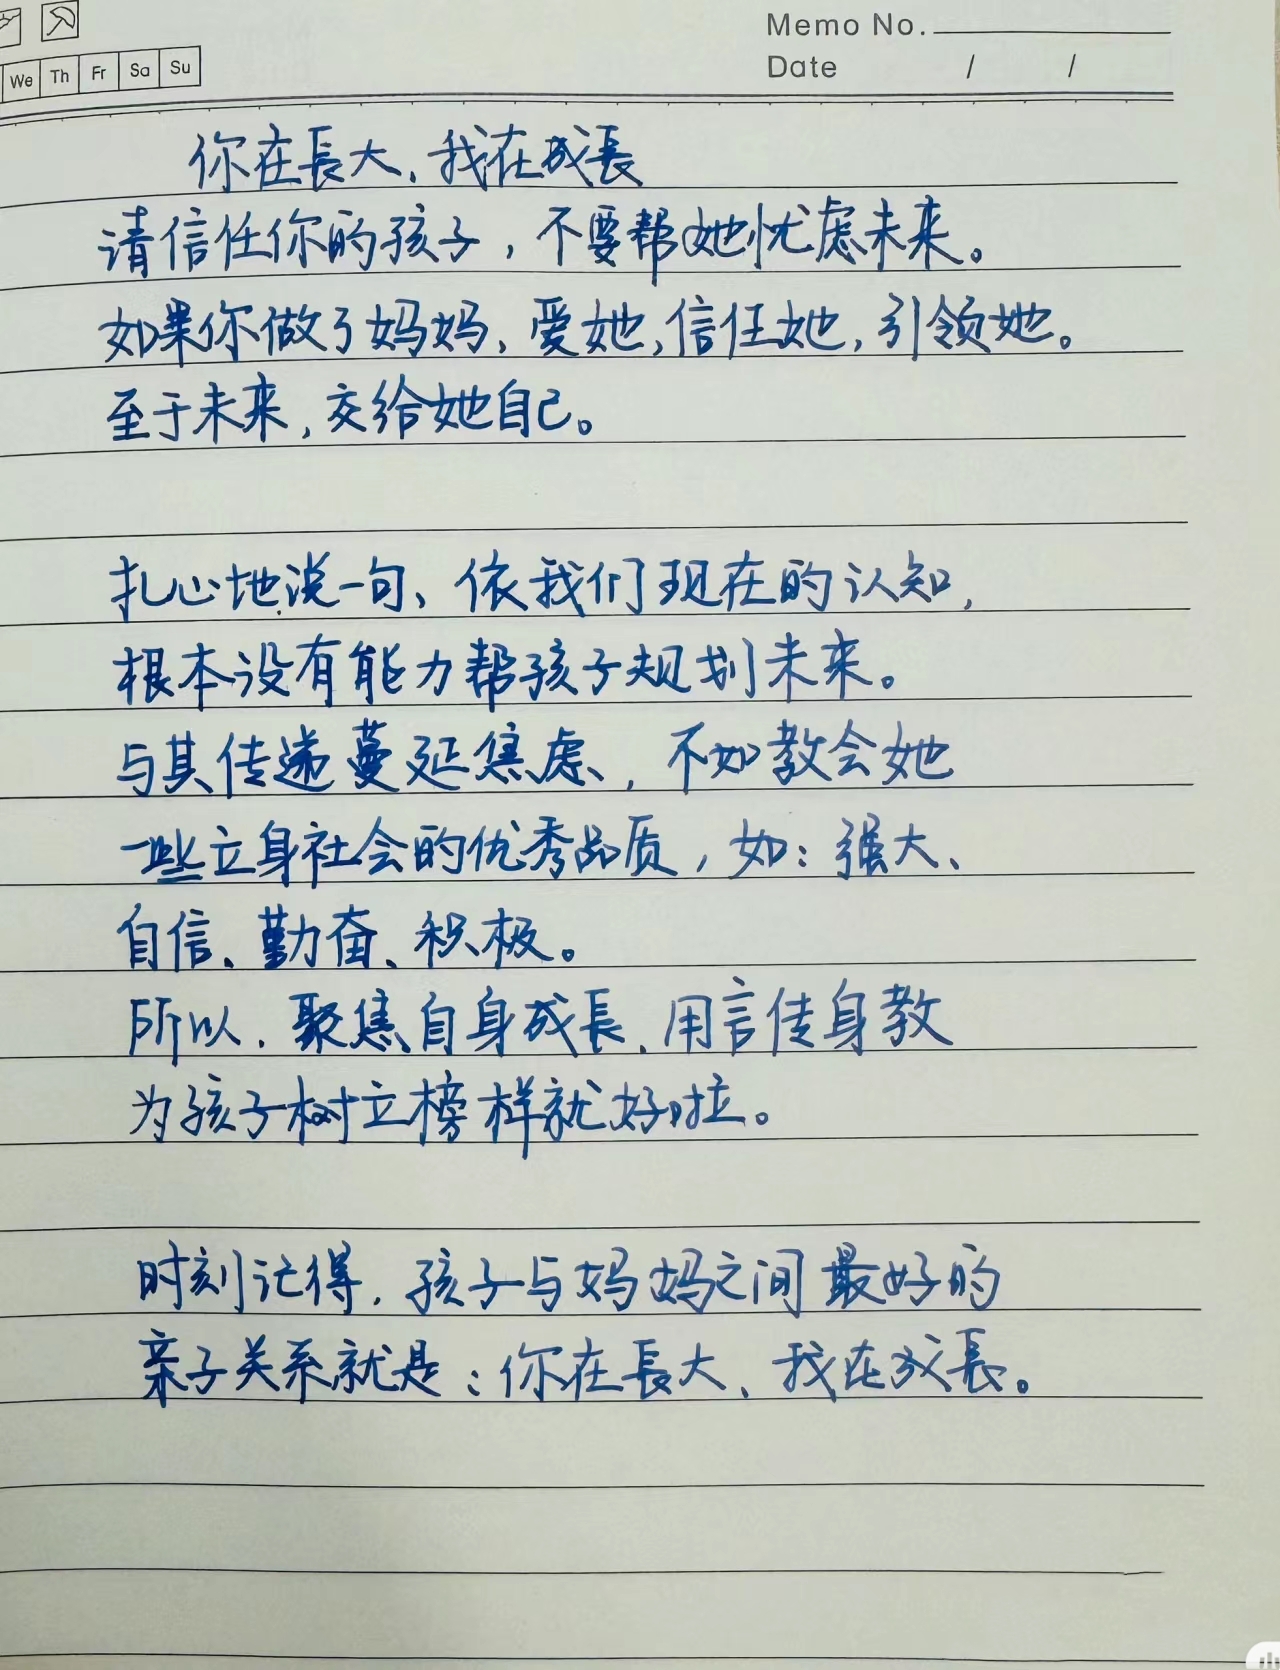 Memo No.
We Th Fr Sa Su
Date / /
你在長大、我在成長
请信任你的孩子，不要帮她忧虑未来。
如果你做了妈妈、爱她,信任她,引领她。
至于未来,交给她自己。
扎心地说一句、依我们现在的认知,
根本没有能力帮孩子规划未来。
与其传递蔓延焦虑，不如教会她
一些立身社会的优秀品质，如：强大、
自信、勤奋、积极。
所以、聚焦自身成長、用言传身教
为孩子树立榜样就好啦。
时刻记得,孩子与妈妈之间最好的
亲子关系就是：你在長大、我在成長。